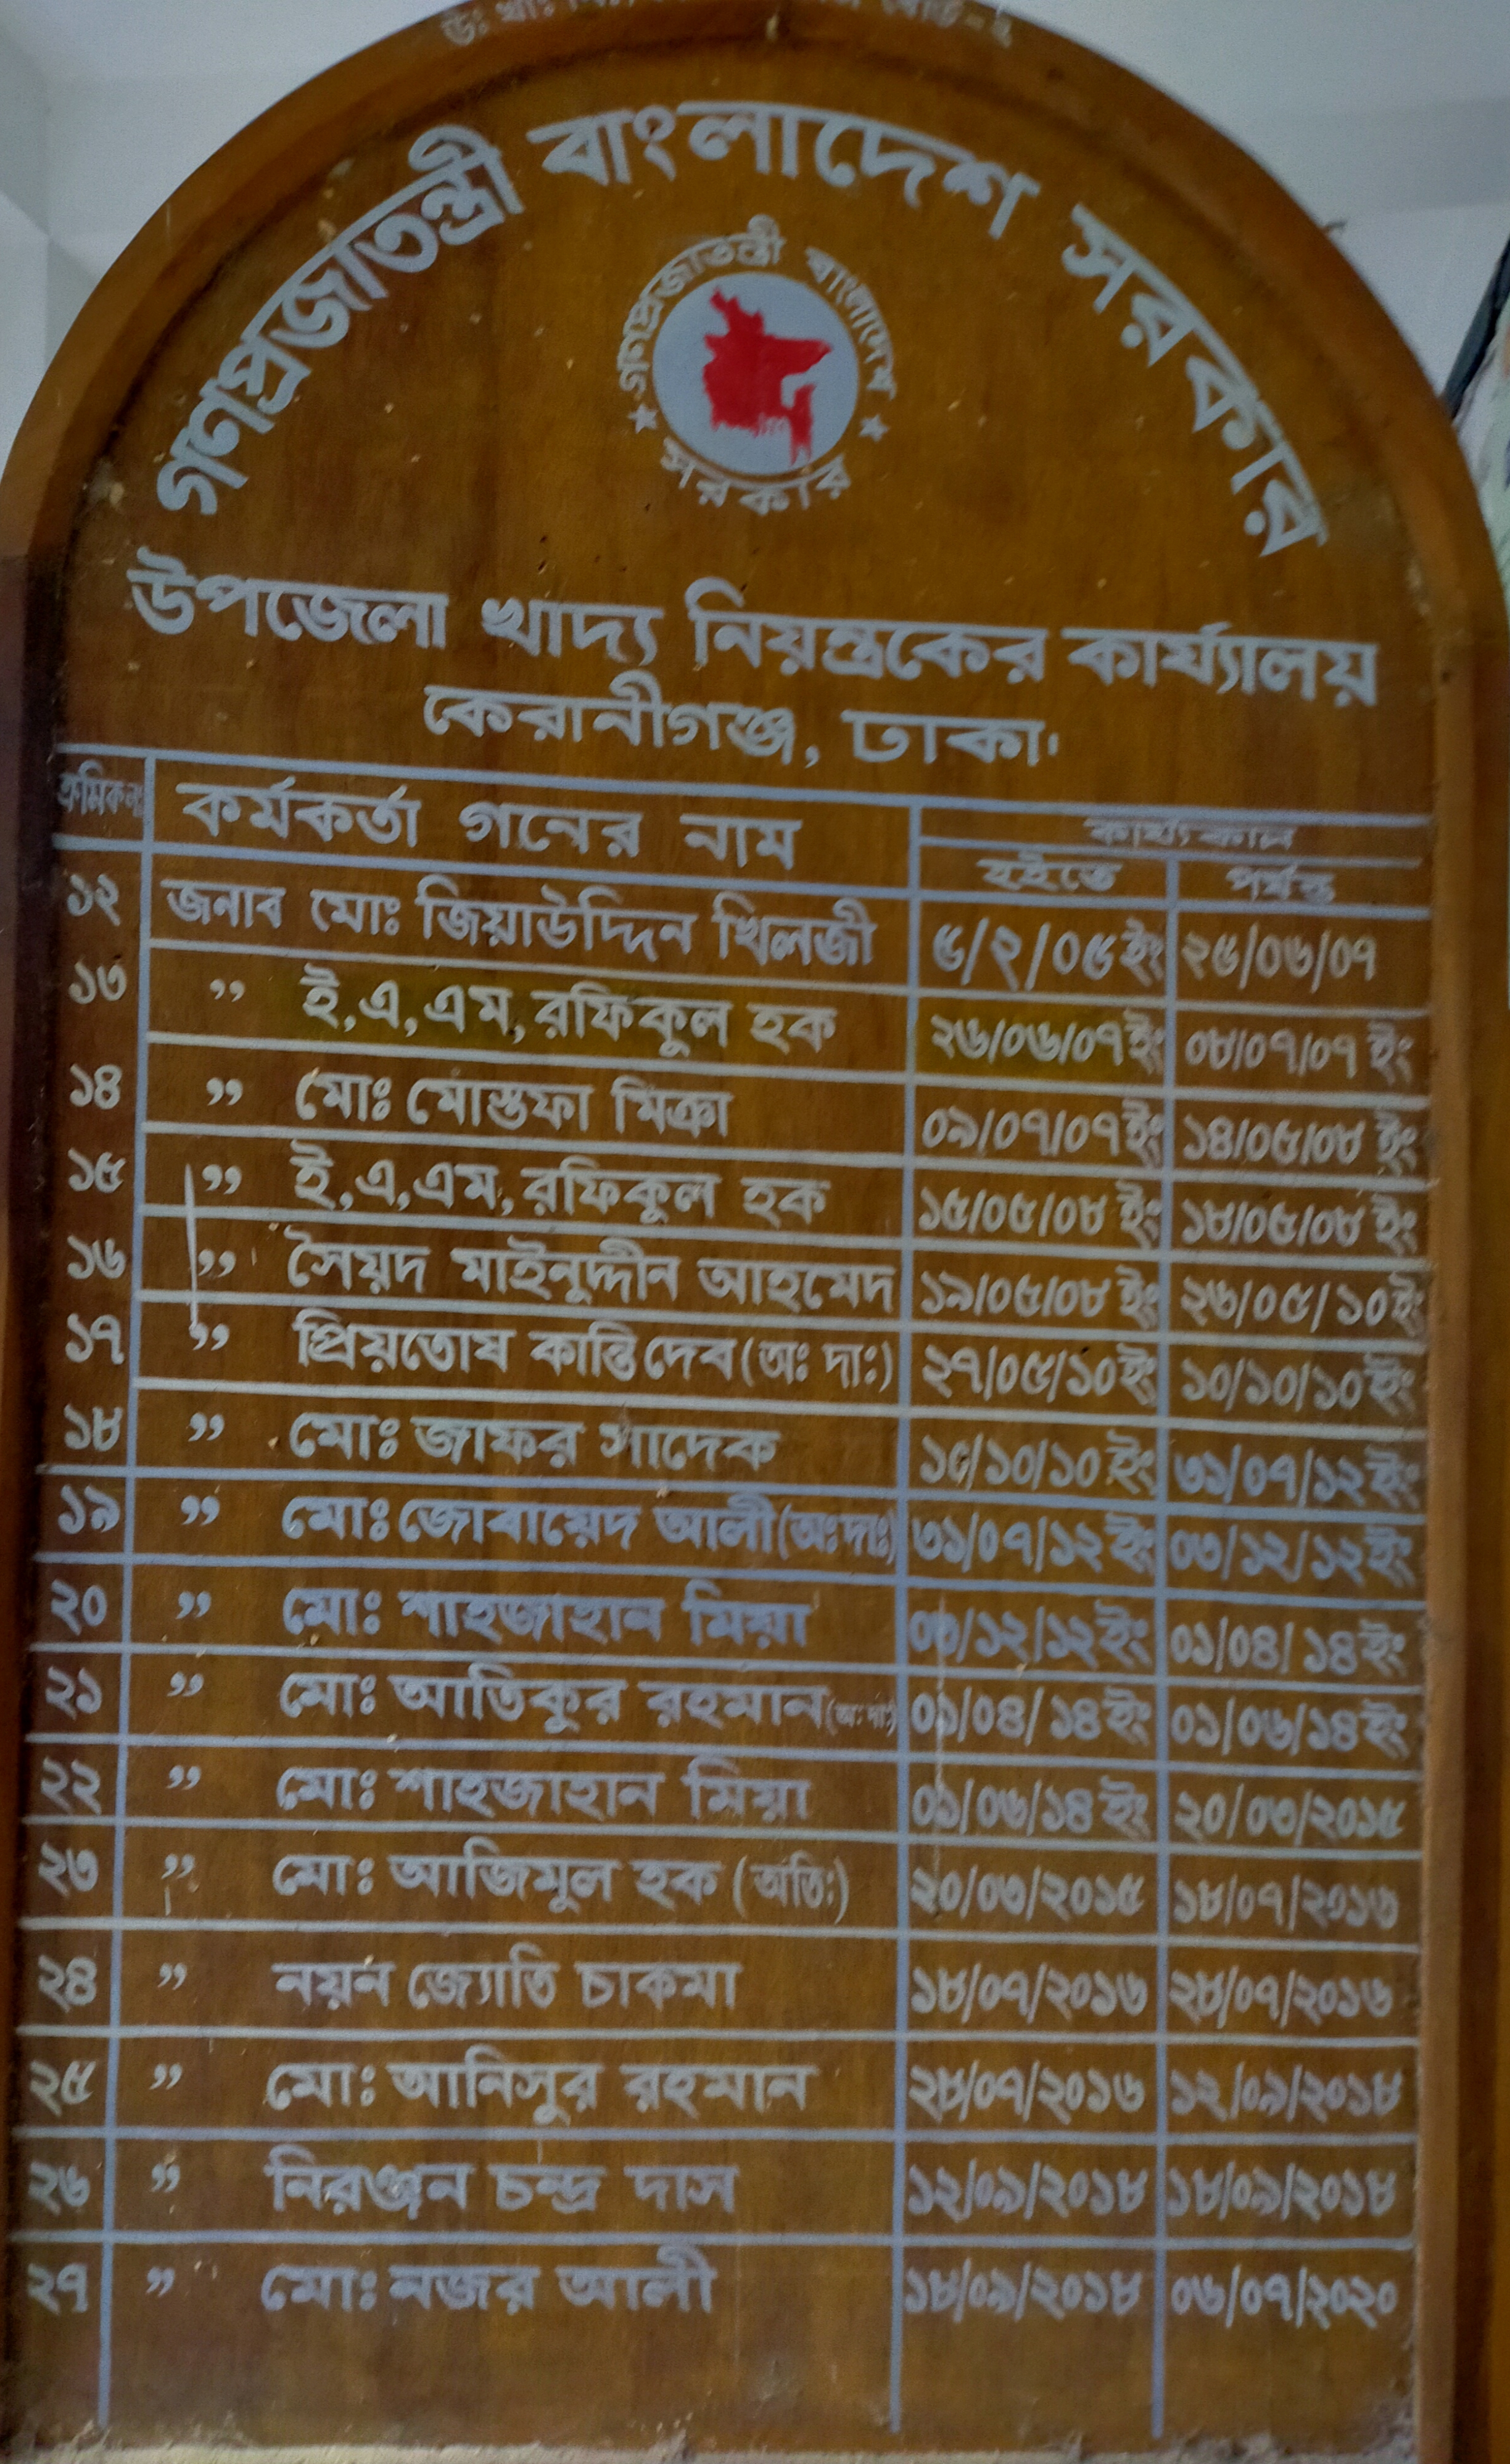 গণপ্রজাতন্ত্রী বাংলাদেশ সরকার
গণপ্রজাতন্ত্রী বাংলাদেশ
সরকার
উপজেলা খাদ্য নিয়ন্ত্রকের কার্য্যালয়
কেরানীগঞ্জ, ঢাকা।
ক্রমিক নং কর্মকর্তা গনের নাম কার্য্যকাল
হইতে পর্যন্ত
১২ জনাব মোঃ জিয়াউদ্দিন খিলজী ৫/২/০৫ইং ২৫/০৬/০৭
১৩ ” ই,এ,এম,রফিকুল হক ২৬/০৬/০৭ইং ০৮/০৭/০৭ ইং
১৪ ” মোঃ মোস্তফা মিঞা ০৯/০৭/০৭ইং ১৪/০৫/০৮ ইং
১৫ ” ই,এ,এম,রফিকুল হক ১৫/০৫/০৮ ইং ১৮/০৫/০৮ ইং
১৬ ” সৈয়দ মাইনুদ্দীন আহমেদ ১৯/০৫/০৮ ইং ২৬/০৫/১০ইং
১৭ ” প্রিয়তোষ কান্তি দেব (অঃ দাঃ) ২৭/০৫/১০ইং ১০/১০/১০ইং
১৮ ” মোঃ জাফর সাদেক ১০/১০/১০ ইং ৩১/০৭/১২ইং
১৯ ” মোঃ জোবায়েদ আলী (অঃদাঃ) ৩১/০৭/১২ ইং ০৩/১২/১২ইং
২০ ” মোঃ শাহজাহান মিয়া ০৩/১২/১২ইং ০১/০৪/১৪ইং
২১ ” মোঃ আতিকুর রহমান (অঃদাঃ) ০১/০৪/১৪ইং ০১/০৬/১৪ইং
২২ ” মোঃ শাহজাহান মিয়া ০১/০৬/১৪ ইং ২০/০৩/২০১৫
২৩ ” মোঃ আজিমুল হক (অতিঃ) ২০/০৩/২০১৫ ১৮/০৭/২০১৬
২৪ ” নয়ন জ্যোতি চাকমা ১৮/০৭/২০১৬ ২৮/০৭/২০১৬
২৫ ” মোঃ আনিসুর রহমান ২৮/০৭/২০১৬ ১২/০৯/২০১৮
২৬ ” নিরঞ্জন চন্দ্র দাস ১২/০৯/২০১৮ ১৮/০৯/২০১৮
২৭ ” মোঃ নজর আলী ১৮/০৯/২০১৮ ০৬/০৭/২০২০